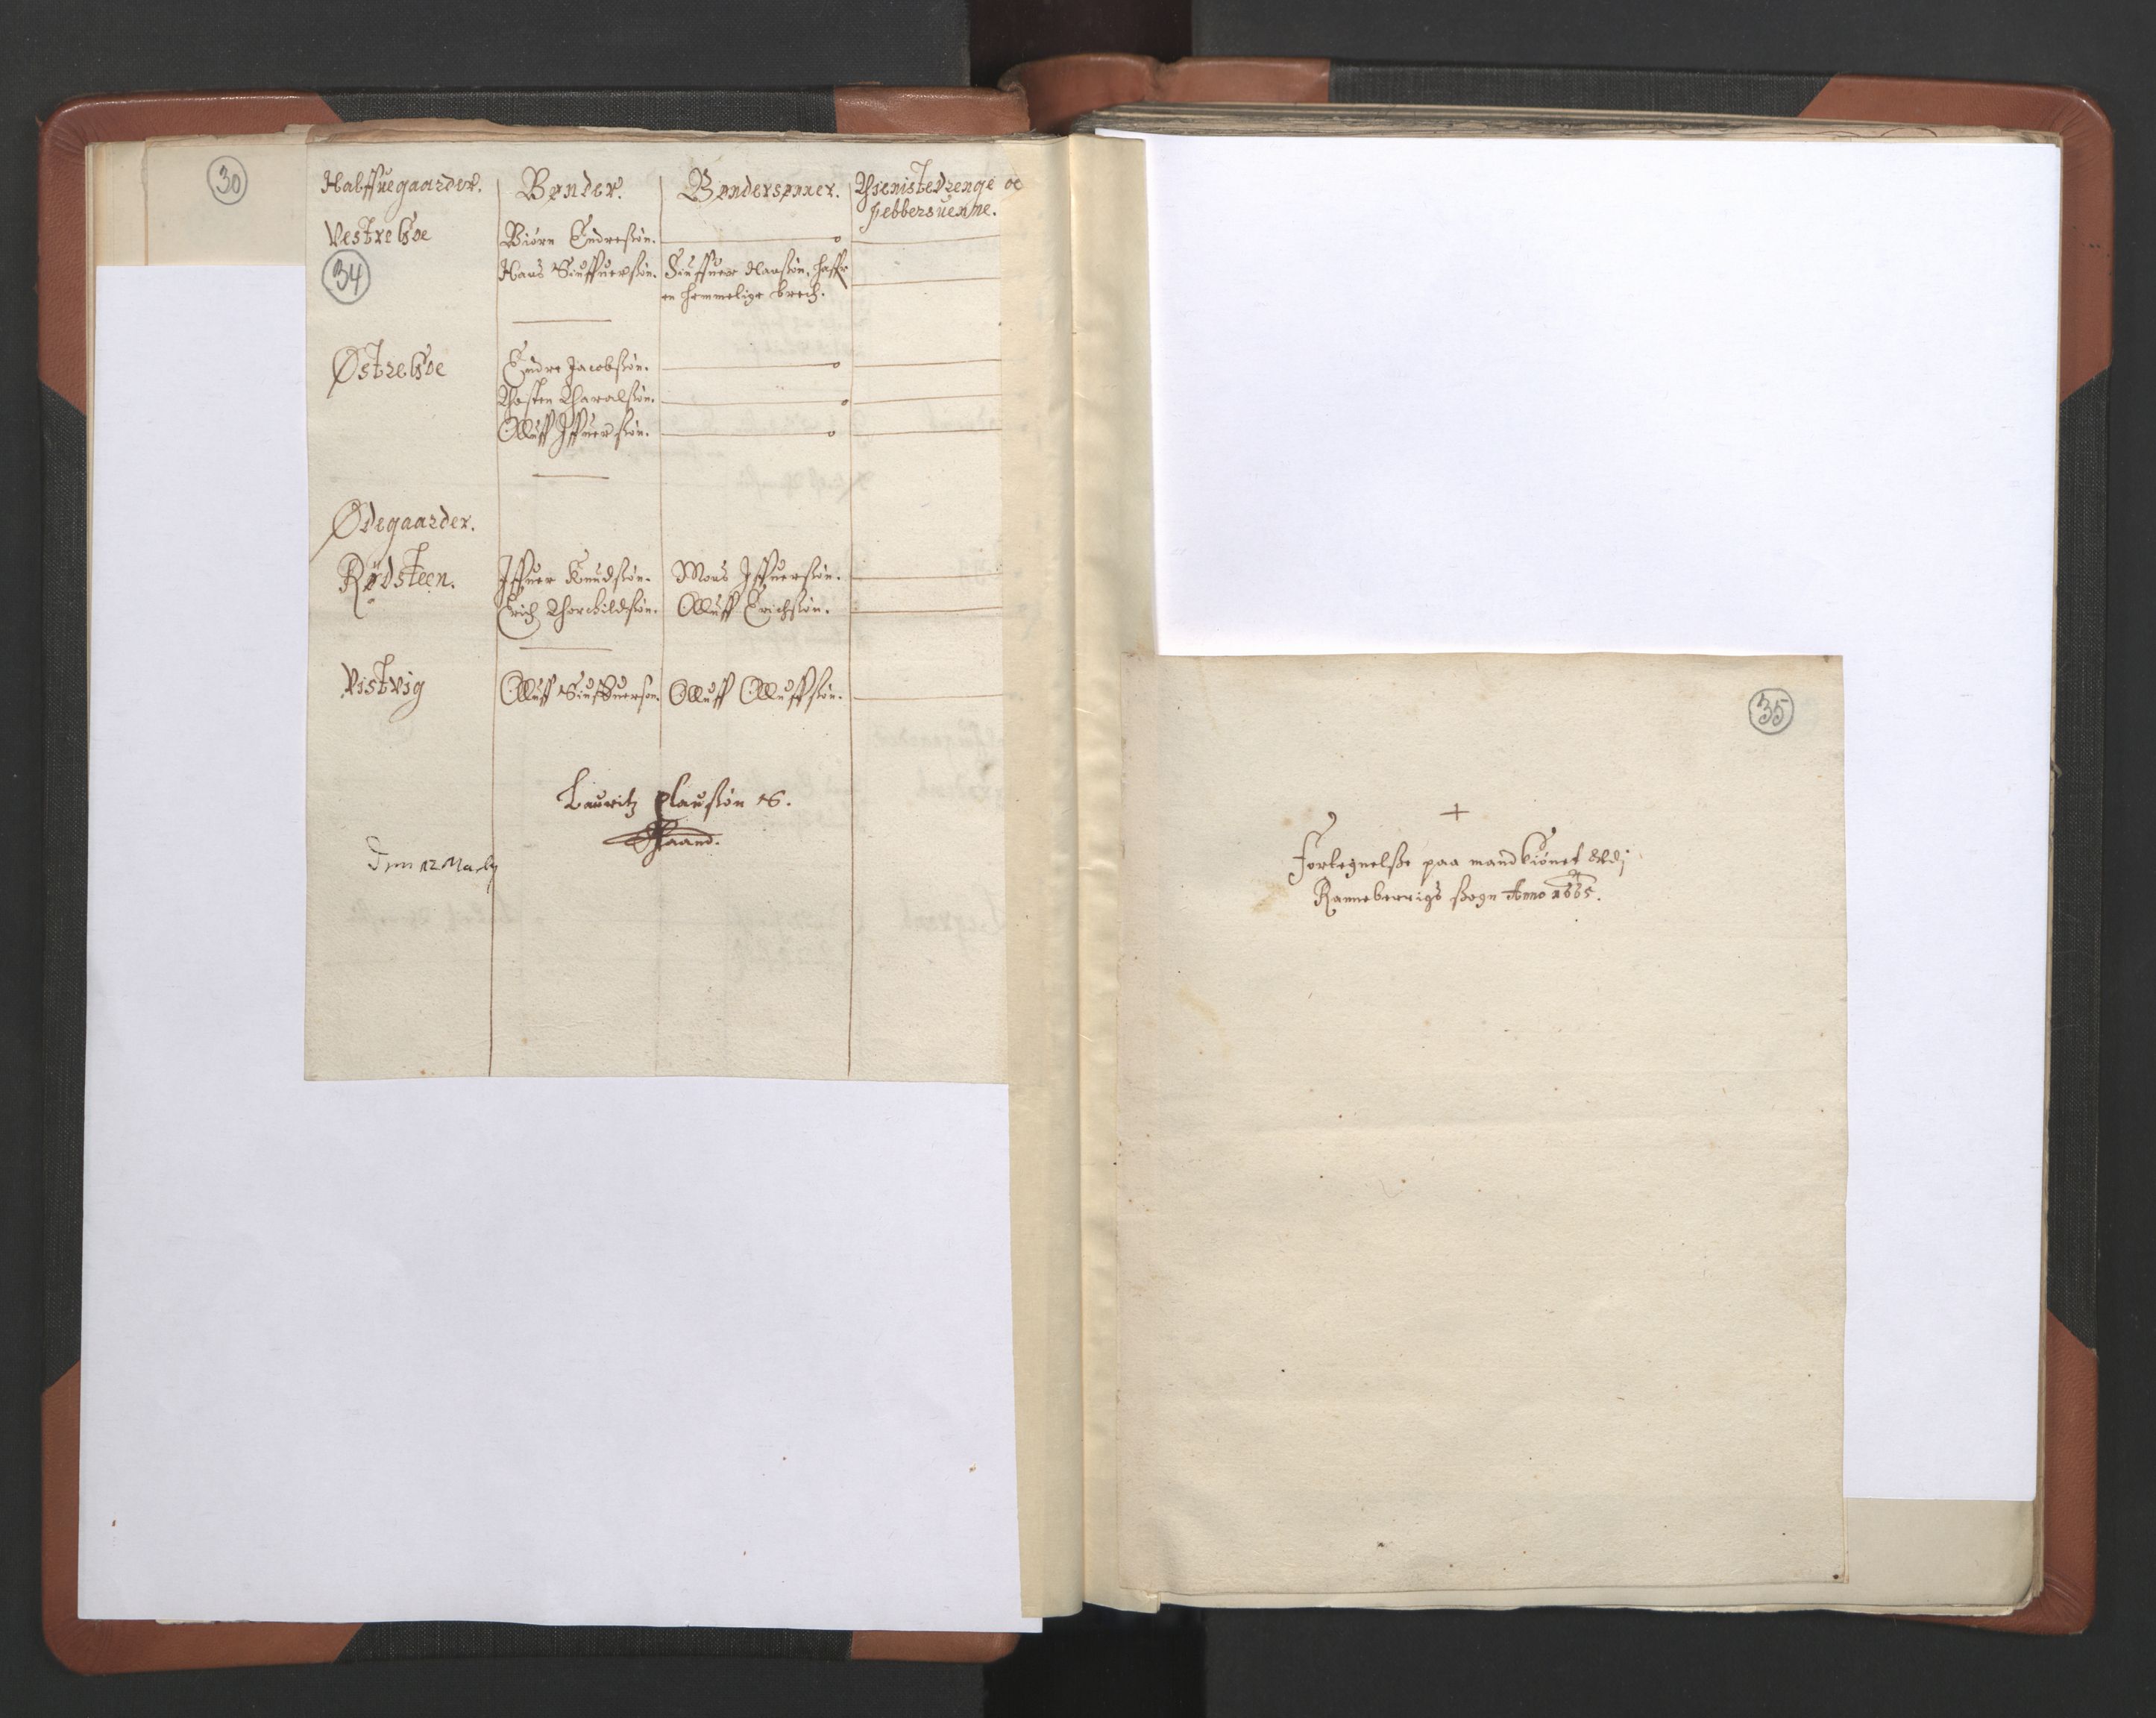 30
Halffuegaarder. Bønder. Bøndersønner. Thienistedrenge oc
Febbersuenne.
Vestreboe Biørn Endresøn.
34
Hans Siuffuersøn. Siuffuer Hansøn, haffr
en hemmelige breck.
Østreboe Endre Jacobsøn.
Tosten Tharalsøn.
Olluff Iffuersøn.
Ødegaarder.
Rødsteen. Iffuer Knudsøn. Mons Iffuersøn.
Erich Thorchildsøn. Olluff Erichsøn.
Vistvig Olluff Siuffuersøn. Olluff Olluffsøn.
Lauritz Clausøn S.
Haand.
35
+
Fortegnelsse paa mandkiønet udj
Renneberrigs sogn Anno 1665.